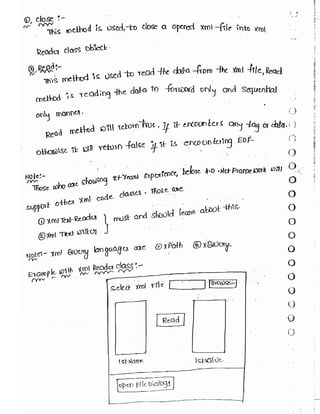 ①. close :-
This method is used, to close a opened xml-file into xml
Reader class object.
②. Read:-
This method is used to read the data from the xml file, Read
method is reading the data in forward only and Sequential
only manner.
Read method will return True, if it encounters any tag or data.
otherwise it will return false if it is encountering EOF.
Note:-
Those who are showing years experience, below 4.0 .Net Framework will
support other xml code classes, Those are
① xml Text Reader } must and should learn about this.
② xml Text writer
Note:- xml Query languages are ① xPath ② xQuery.
Example with xml Reader class :-
Select xml File Browse
Read
lstName lstValue
open File Dialog1